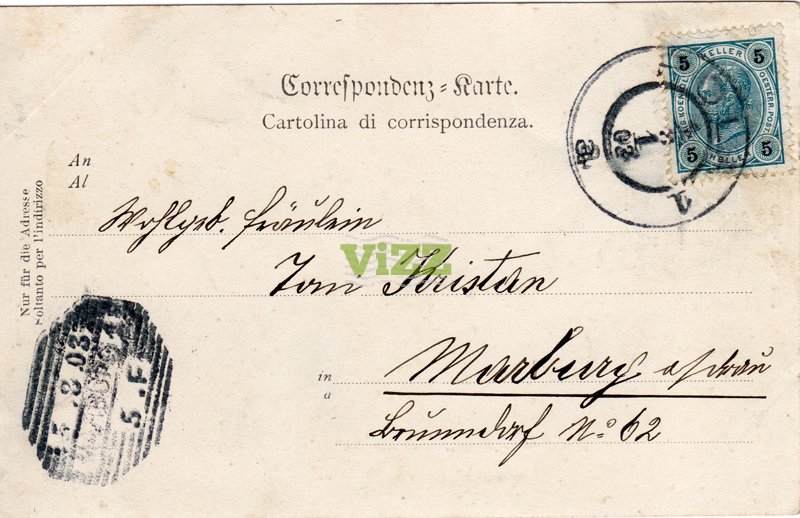 Correspondenz-Karte.
Cartolina di corrispondenza.
An
Al
Nur für die Adresse
Soltanto per l'indirizzo
Wohlgeb. Fräulein
Toni Kristan
ViZZ
in
a
Marburg a/Drau
Brunndorf No 62
5 HELLER 5
5 HELLER 5
1 03
1
8 03
5.F